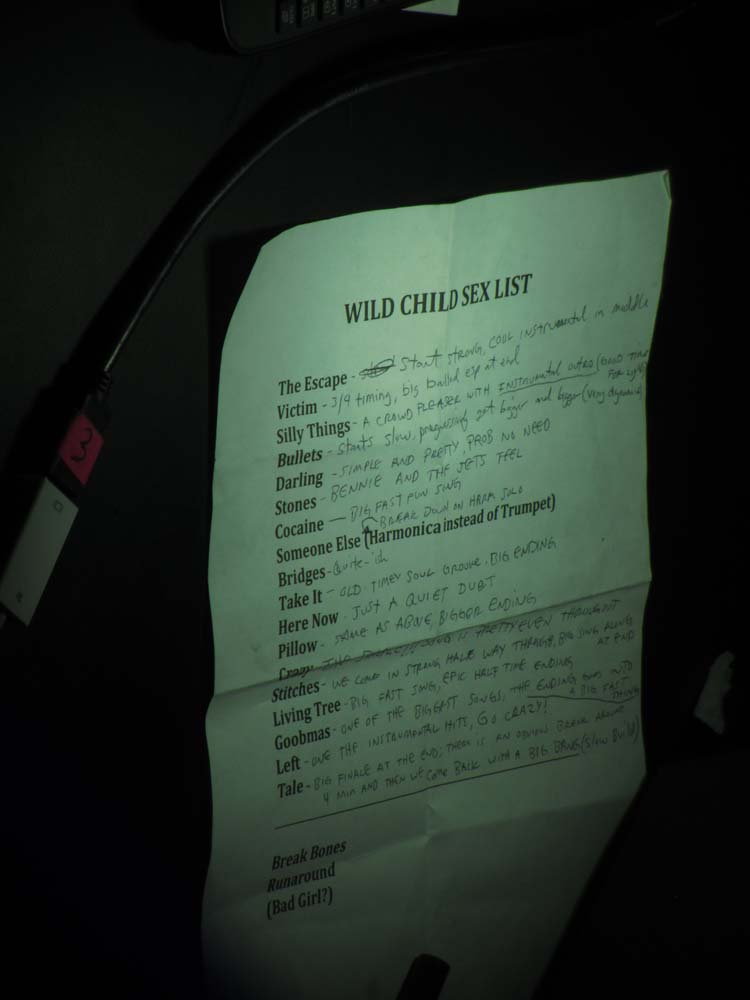 3
WILD CHILD SEX LIST
The Escape - Start STRONG, COOL INSTRUMENTAL in middle
Victim - 3/4 timing, big ballad esp at end
Silly Things - A CROWD PLEASER WITH INSTRUMENTAL OUTRO (GOOD TIME FOR
Bullets - Starts slow, progressively get bigger and bigger (very dynamic)
Darling - SIMPLE AND PRETTY, PROB NO NEED
Stones - BENNIE AND THE JETS FEEL
Cocaine — BIG FAST FUN SING
BREAK DOWN ON HARM SOLO
Someone Else (Harmonica instead of Trumpet)
Bridges - Quite-ish
Take It - OLD TIMEY SOUL GROOVE, BIG ENDING
Here Now - JUST A QUIET DUET
Pillow - SAME AS ABOVE, BIGGER ENDING
Crazy - IS PRETTY EVEN THROUGHOUT
Stitches - WE COME IN STRONG HALF WAY THROUGH, BIG SING ALONG AT END
Living Tree - BIG FAST SONG, EPIC HALF TIME ENDING
Goobmas - ONE OF THE BIGGEST SONGS, THE ENDING GOES INTO A BIG FAST THING
Left - ONE THE INSTRUMENTAL HITS, GO CRAZY!
Tale - BIG FINALE AT THE END; THERE IS AN OBVIOUS BREAK AROUND
4 min AND THEN WE COME BACK WITH A BIG BANG (Slow Build)
Break Bones
Runaround
(Bad Girl?)